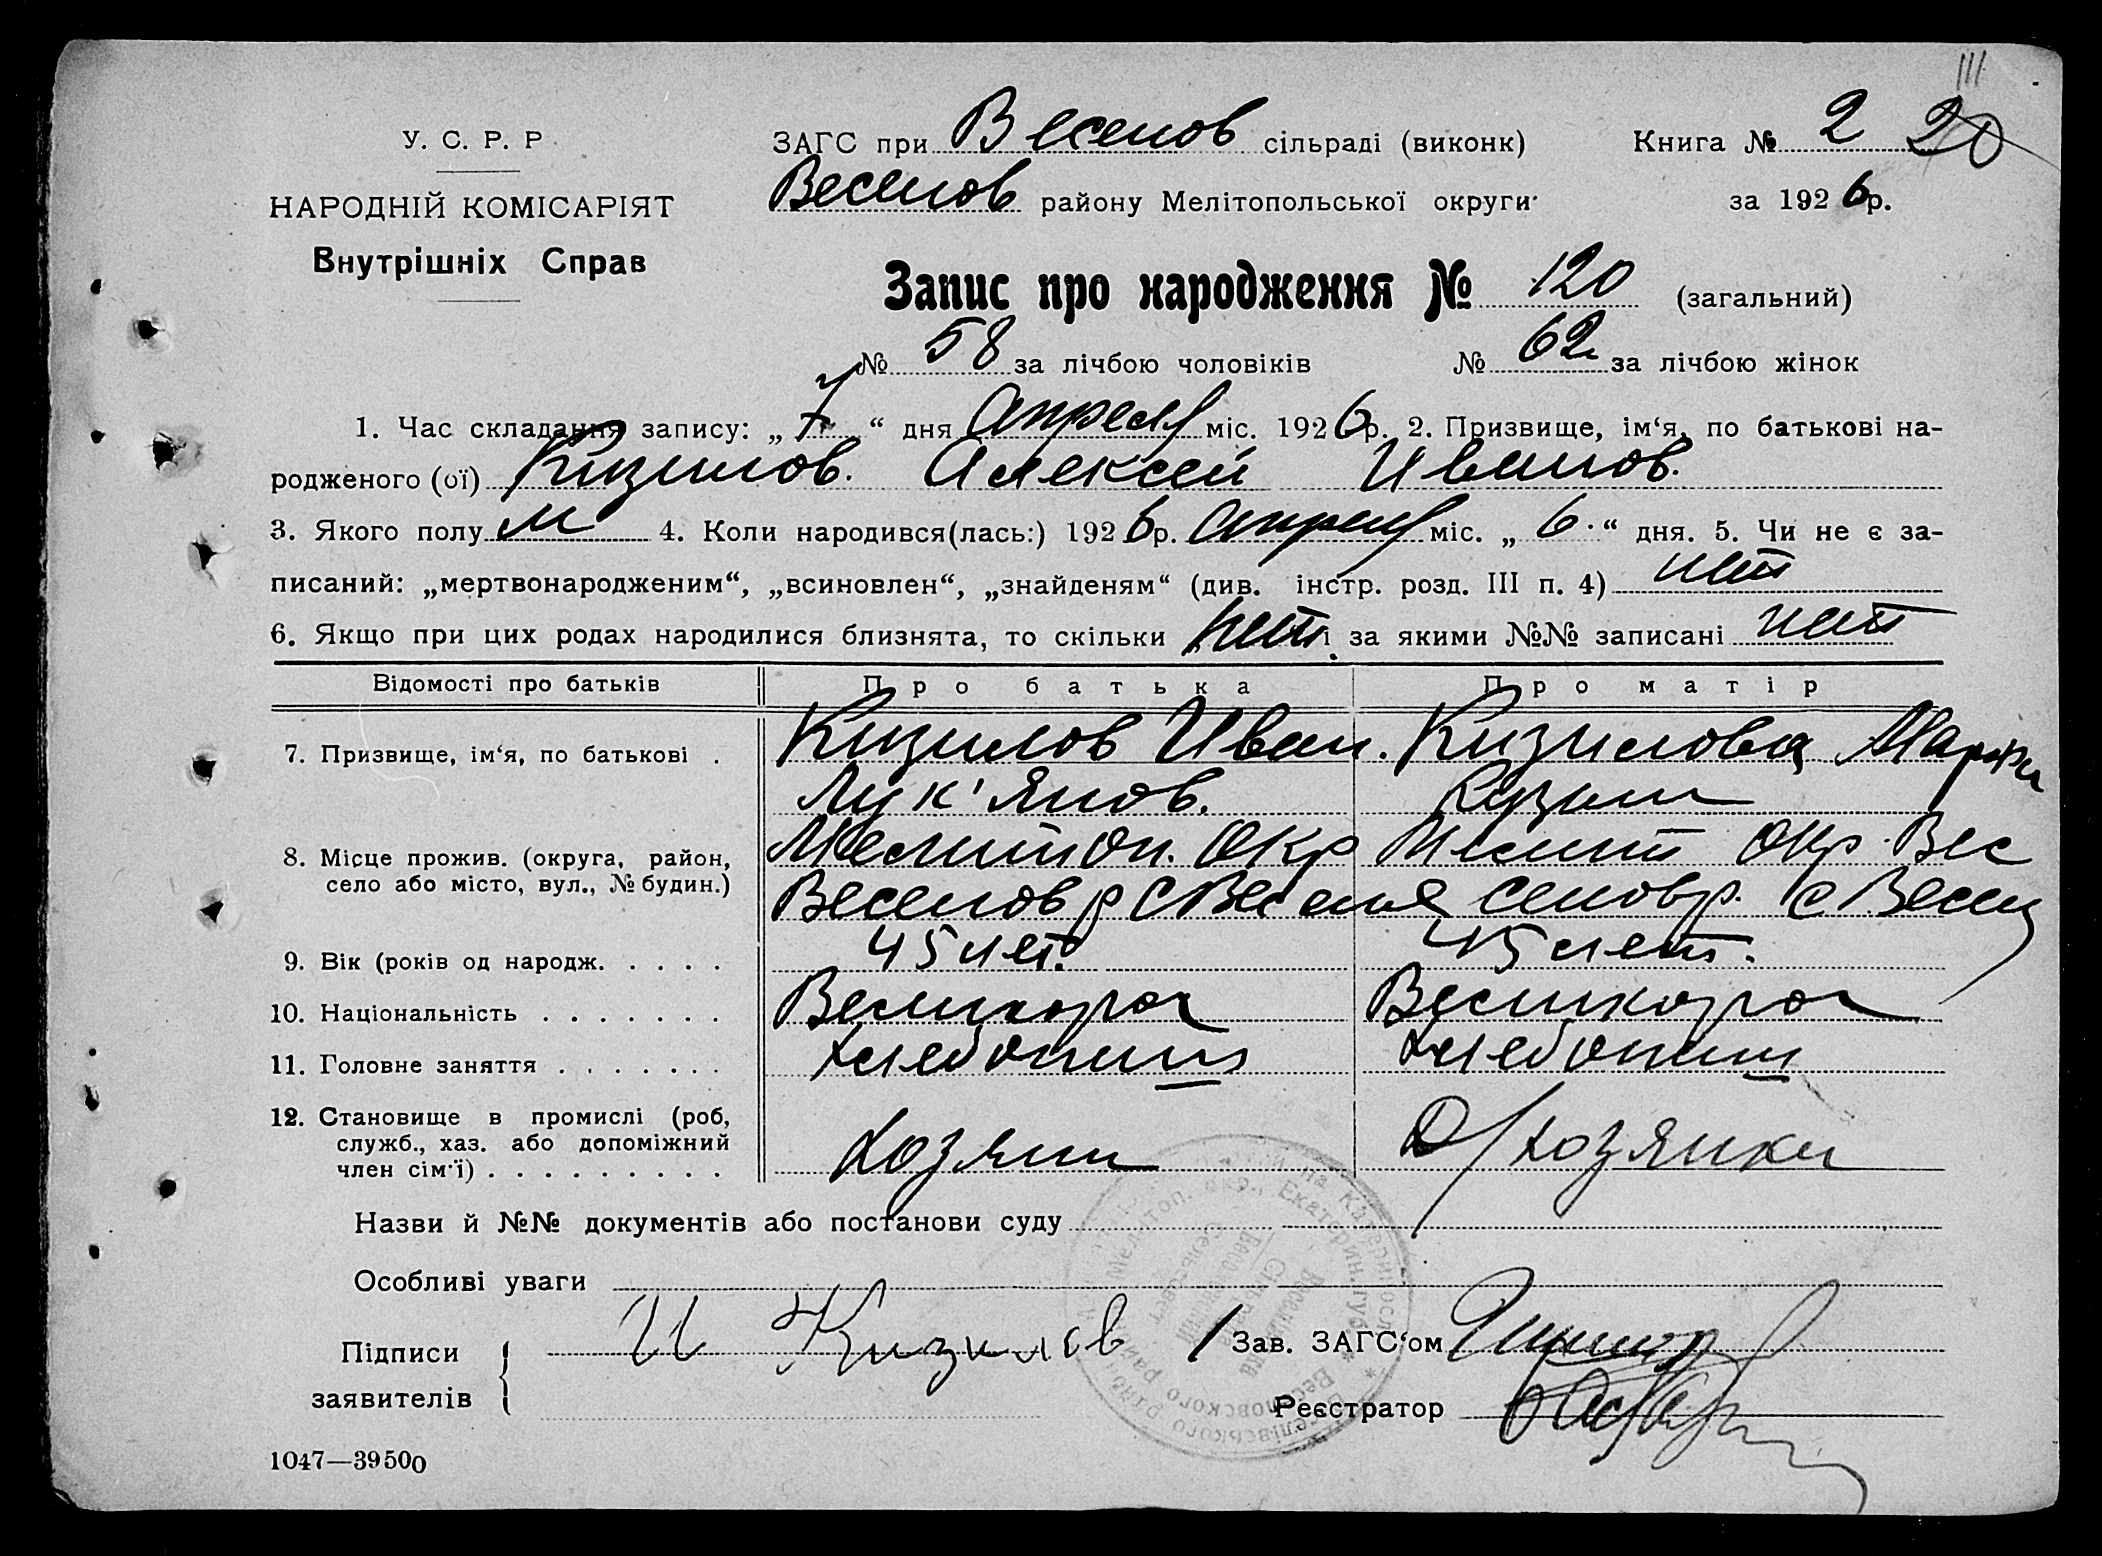 111
У. С. Р. Р
НАРОДНІЙ КОМІСАРІЯТ
Внутрішніх Справ
ЗАГС при Веселов сільраді (виконк) Книга № 2 20
Веселов району Мелітопольської округи за 1926р.
Запис про народження № 120 (загальний)
№ 58 за лічбою чоловіків № 62 за лічбою жінок
1. Час складання запису: „7“ дня Апреля міс. 1926р. 2. Призвище, ім‘я, по батькові на-
родженого (ої) Кизилов. Алексей Иванов.
3. Якого полу м 4. Коли народився(лась:) 1926р. Апреля міс. „6.“ дня. 5. Чи не є за-
писаний: „мертвонародженим“, „всиновлен“, „знайденям“ (див. інстр. розд. III п. 4) нет
6. Якщо при цих родах народилися близнята, то скільки нет і за якими №№ записані нет
Відомості про батьків Про батька Про матір
7. Призвище, ім‘я, по батькові . Кизилов Иван. Кизилова Мария
Лук'янов. Кузьм
8. Місце прожив. (округа, район, Мелитоп. Окр Мелит окр. Вес
село або місто, вул., № будин.) Веселов р с Веселое селов р. с Весел
9. Вік (років од народж. . . . . 45 лет. 45 лет.
10. Національність . . . . . . . Великорос Великорос
11. Головне заняття . . . . . . . хлебопаш хлебопаш
12. Становище в промислі (роб,
служб., хаз. або допоміжний Хозяин Д/хозяйка
член сім‘ї) . . . . . . . . .
Назви й №№ документів або постанови суду
Особливі уваги
Підписи И Кизилов Зав. ЗАГС‘ом
заявителів Реєстратор
1047—39500